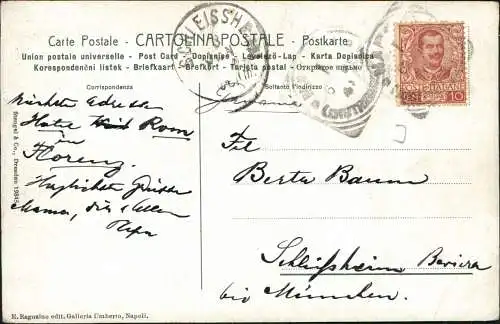 Carte Postale - CARTOLINA POSTALE - Postkarte
Union postale universelle - Post Card - Dopisnice - Levelező-Lap - Karta Dopisnica
Korespondenční lístek - Briefkaart - Brefkort - Tarjeta postal - Открытое письмо
Corrispondenza
Soltanto l'indirizzo
SCHLEISSHEIM
POSTE ITALIANE
CENT. 10
nächste Adresse
Hotel Rom
in
Florenz.
Herzlichste Grüsse
Mama,
Papa
Stengel & Co., Dresden
Frl
Berta Baum
Schleißheim Baviera
bei München.
E. Ragozino edit. Galleria Umberto, Napoli.